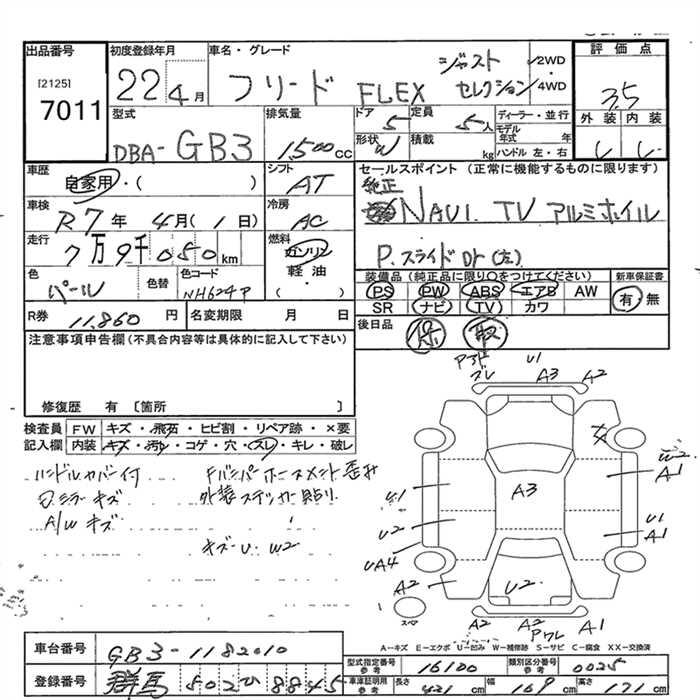 出品番号 初度登録年月 車名・グレード 評価点
[2125] 22 4月 フリード FLEX ジャスト セレクション 2WD・4WD 3.5
7011 型式 排気量 ドア 定員 ディーラー・並行 外装 内装
DBA-GB3 1500cc 5 5人 モデル年式 年
形状 W 積載 kg ハンドル 左・右
車歴 シフト セールスポイント (正常に機能するものに限ります)
自家用・( ) AT 純正
車検 冷房 NAVI. TV アルミホイル
R7年 4月(1日) AC
走行 燃料 P.スライドDr(左)
7万9千050km ガソリン
色 色替 色コード 軽油 装備品(純正品に限り○をつけてください) 新車保証書
パール NH624P ( ) PS PW ABS エアB AW 有・無
SR ナビ TV カワ
R券 11,860円 名変期限 月 日 後日品 保 取
注意事項申告欄(不具合内容等は具体的に記入して下さい)
修復歴 有 〔箇所 〕
検査員 FW キズ・飛石・ヒビ割・リペア跡・×要
記入欄 内装 キズ・汚れ・コゲ・穴・スレ・キレ・破レ
ハンドルカバー付 Fバンパーホースメント歪み
ミラーキズ 外装ステッカー貼り
A/W キズ
キズ・U W2
U1
A3
A2
W2
A1
A3
U1
U1
A1
U2
UA4
A2
U2
A2
A2
A1
スペア
A-キズ E-エクボ U-凹み W-補修跡 S-サビ C-腐食 XX-交換済
車台番号 GB3-1182010
型式指定番号 参考 16100 類別区分番号 参考 0025
登録番号 群馬 502 ひ 8845
車庫証明用 参考 長さ 421cm 幅 169cm 高さ 171cm